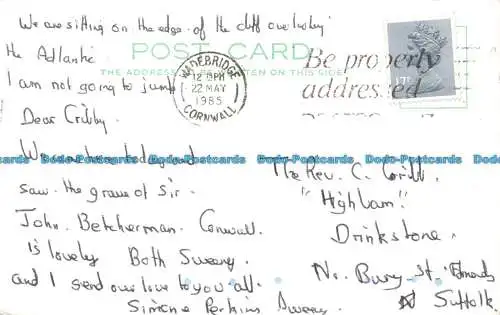 We are sitting on the edge of the cliff overlooking
the Adlantic
I am not going to jump
POST CARD
THE ADDRESS TO BE WRITTEN ON THIS SIDE
WADEBRIDGE
12 15PM
22 MAY
1985
CORNWALL
Be properly
addressed
17P
Dear
We have and
saw the grave of Sir.
John. Betcherman. Cornwall.
is lovely Both Sweeny.
and I send our love to you all.
Simone Perkins Sweeny
The Rev. C.
"Highlam"
Drinkstone.
Nr. Bury. St. Edmonds
Suffolk.
Dodo-Postcards Dodo-Postcards Dodo-Postcards Dodo-Postcards Dodo-Postcards